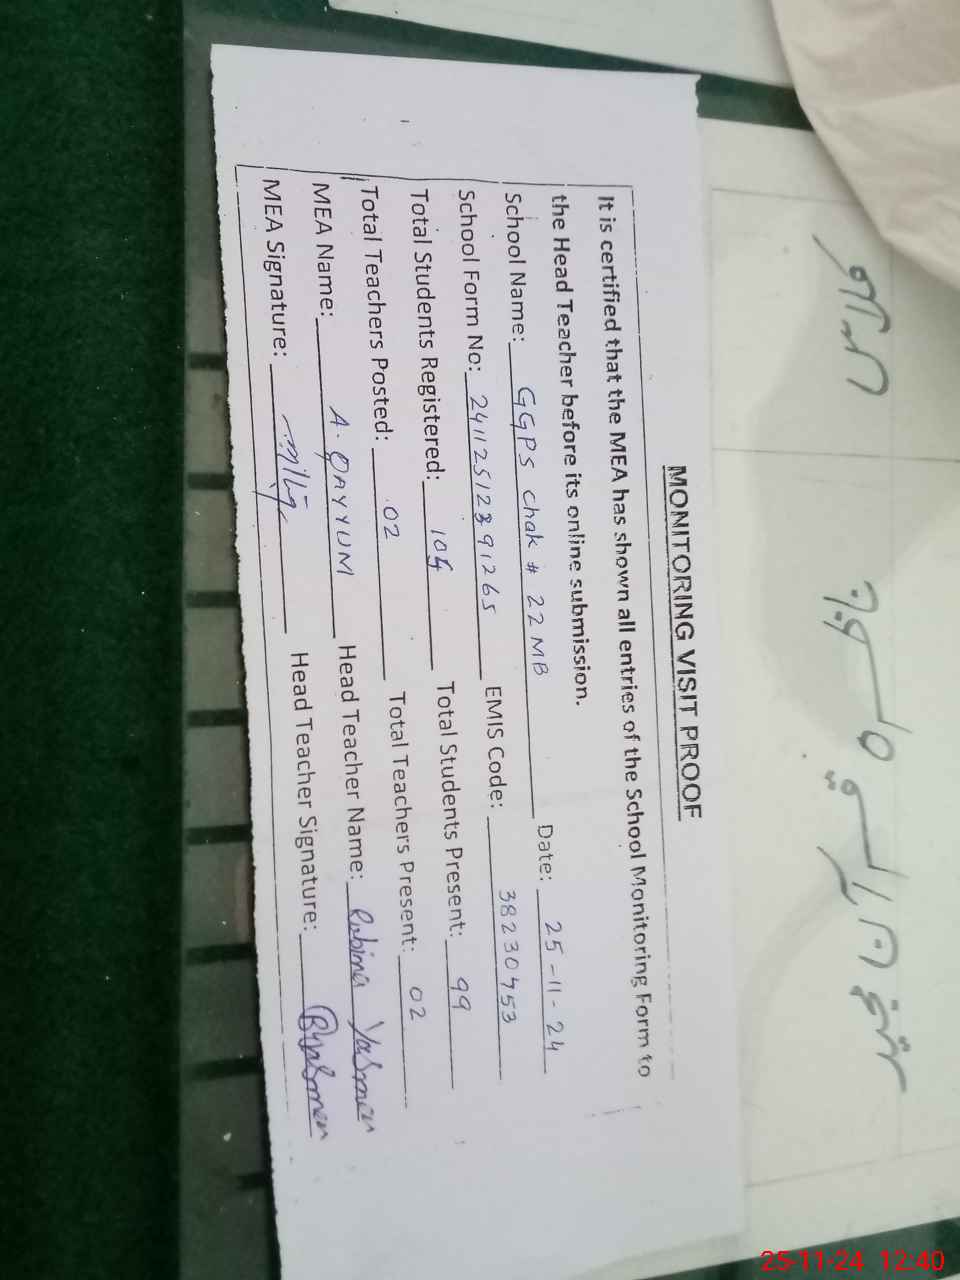 MONITORING VISIT PROOF
It is certified that the MEA has shown all entries of the School Monitoring Form to
the Head Teacher before its online submission.
School Name: GGPS chak # 22 MB Date: 25-11-24
School Form No: 24112512391265 EMIS Code: 38230453
Total Students Registered: 104 Total Students Present: 99
Total Teachers Posted: 02 Total Teachers Present: 02
MEA Name: A. QAYYUM Head Teacher Name: Rubina Yasmen
MEA Signature: Head Teacher Signature: RYasmen
25-11-24 12:40